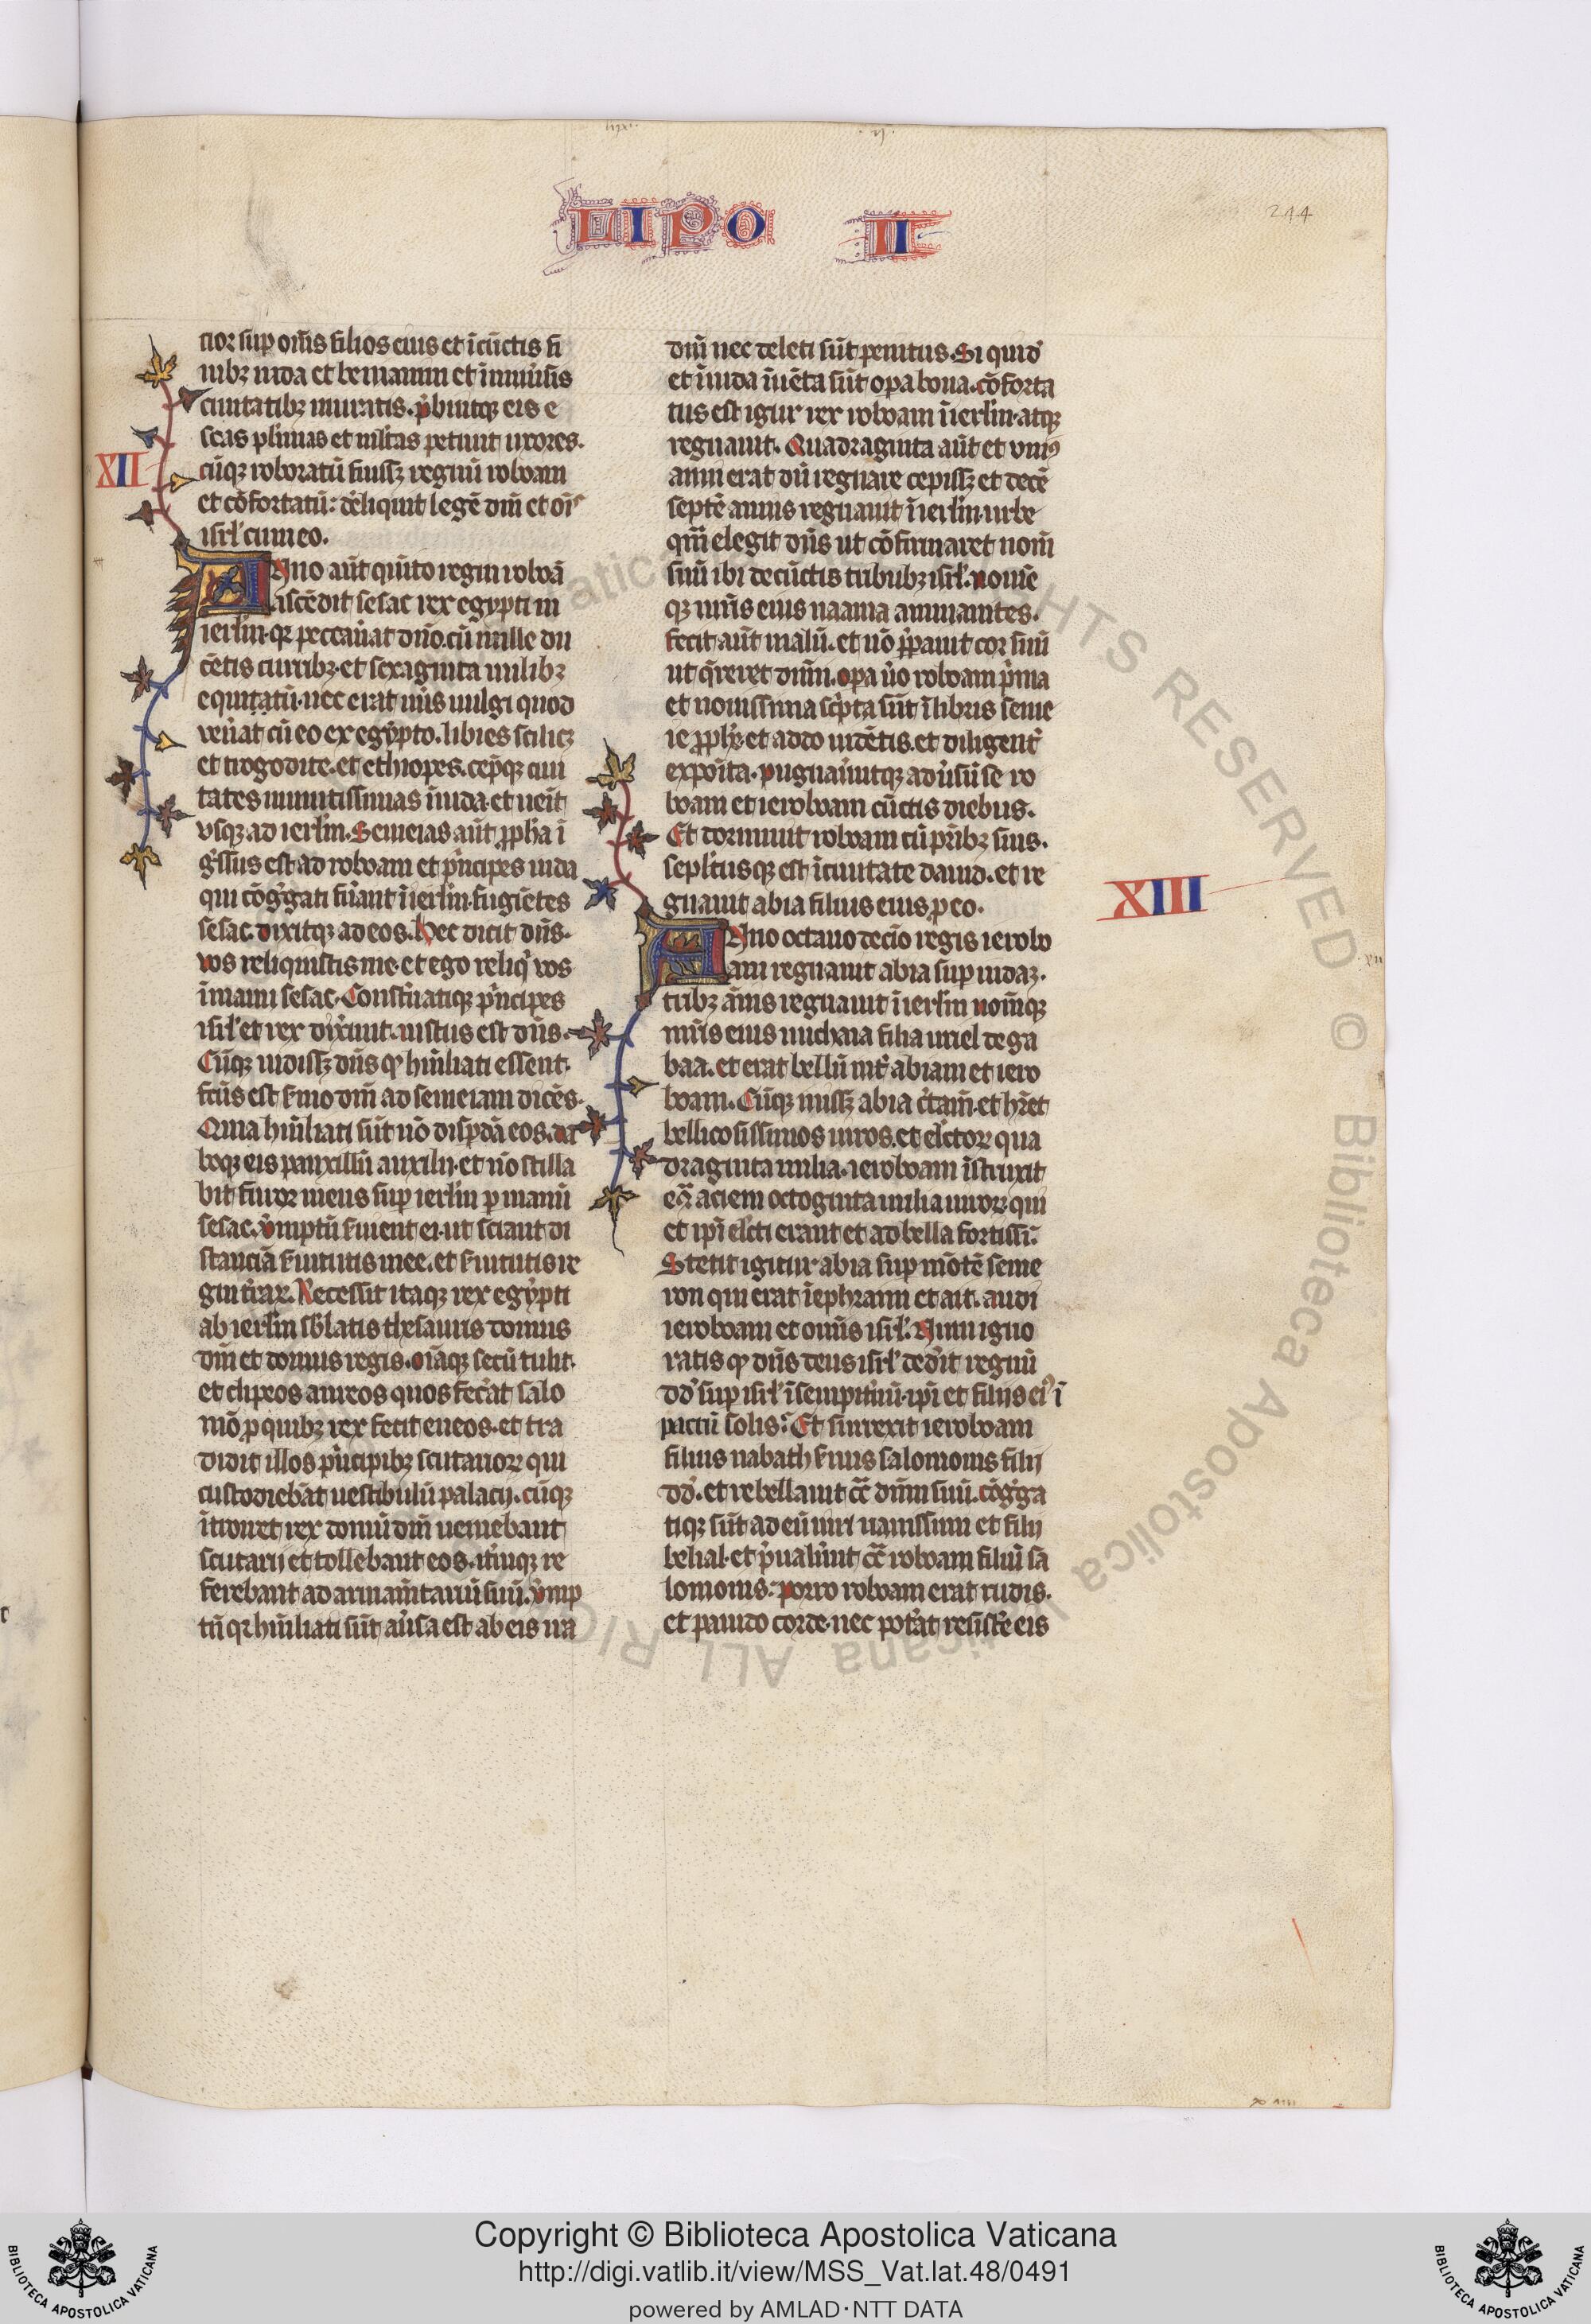 LIPO II
244
cior sup om̅s filios eius et i̅cu̅ctis fi
nibꝫ iuda et beniamin et i̅uniu̓sis
ciuitatibꝫ muratis. p̓buitqꝫ eis e
scas plimas et ml̓tas petiuit uxores.
XII
cu̅qꝫ roboratu̅ fuissꝫ regnu̅ roboam
et co̅fortatu̅: deliquit lege̅ dm̅ et oi̅s
isrl̓ cum eo.
Anno au̅t qui̅to regni roboa̅
asce̅dit sesac rex egypti in
ierl̅m. qꝛ peccau̓at dn̅o. cu̅ mille du
ce̅tis curribꝫ. et sexaginta milibꝫ
equitatu̅. nec erat nu̅s uulgi quod
ven̓at cu̅ eo ex egypto. libies scilicꝫ
et trogodite. et ethiopes. cep̓qꝫ ciui
tates munitissimas i̅iuda. et ueit
vsqꝫ ad ierl̅m. Semeias au̅t ꝓpha i̅
g̓ssus est ad roboam et p̓ncipes iuda
qui co̅g̓gati fu̓ant i̅ ierl̅m. fugie̅tes
sesac. dixitqꝫ ad eos. hec dicit dn̅s.
vos reliquistis me. et ego reliq̓ vos
i̅manu sesac. Const̓natiqꝫ p̓ncipes
isrl̓ et rex dixe̓unt. iustus est dn̅s.
Cu̅qꝫ uidissꝫ dn̅s qꝫ humliati essent.
fc̅us est s̓mo dm̅ ad semeiam dice̅s.
Quia hu̅iliati su̅t no̅ disp̱da̅ eos. da
boqꝫ eis pauxillu̅ auxilij. et no̅ stilla
bit furor meus sup ierl̅m p̱ manu̅
sesac. v̓mptn̅ s̓uient ei. ut sciant di
stancia̅ s̓uitutis mee. et s̓uitutis re
gni t̓raꝝ. Recessit itaqꝫ rex egypti
ab ierl̅m sb̓latis thesauris domus
dm̅ et domus regis. oi̅aqꝫ secu̅ tulit.
et clipeos aureos quos fec̓at salo
mo̅ p̱ quibꝫ rex fecit eneos. et tra
didit illos p̓ncipibꝫ scutarioꝝ qui
custodieba̅t uestibulu̅ palacij. cu̅qꝫ
i̅troiret rex domu̅ dm̅ ueniebant
scutarij et tollebant eos. it̓u̅qꝫ re
ferebant ad armam̅tariu̅ suu̅. v̓mp
tn̅ qꝛ hu̅iliati su̅t au̓sa est ab eis ira
dm̅ nec deleti su̅t penitus. Si quid̓
et i̅iuda i̅ue̅ta su̅t opa bona. co̅forta
tus est igur rex roboam i̅ ierl̅m. atqꝫ
regnauit. Quadraginta au̅t et vniꝰ
anni erat cu̅ regnare cepissꝫ et dece̅
septe̅ annis regnauit i̅ ierl̅m. urbe
qm̅ elegit dn̅s ut co̅firmaret nom̅
suu̅ ibi de cu̅ctis tribubꝫ isrl̓. nome̅
qꝫ mr̅is eius naama ammanites.
fecit au̅t malu̅. et no̅ p̓pauit cor suu̅
ut q̓reret dnm̅. opa u̓o roboam p̓ma
et nouissima sc̓pta su̅t i̅ libris seme
ie ꝓphe̅. et addo uide̅tis. et diligent̓
exposita. pugnau̓utqꝫ adu̓su̅ se ro
boam et ieroboam cu̅ctis diebus.
Et dormiuit roboam cu̅ pr̅ibꝫ suis.
sepl̓tusqꝫ est i̅ciuitate dauid. et re
gnauit abia filius eius p̱ eo.
XIII
Anno octauo decio regis ierobo
am regnauit abia sup iudaꝫ.
tribꝫ a̅nis regnauit i̅ ierl̅m nom̅qꝫ
mr̅is eius michaia filia uriel de ga
baa. et erat bellu̅ int̓ abiam et iero
boam. Cu̅qꝫ inissꝫ abia c̓tam̅. et hr̅et
bellicosissimos uiros. et elc̅toꝝ qua
draginta milia. ieroboam i̅struxit
eq̅ aciem octoginta milia uiroꝝ qui
et ip̅i elc̅ti erant et ad bella fortissi.̅
Stetit igitur abia sup mo̅te̅ seme
ron qui erat i̅ ephraim et ait. audi
ieroboam et omis̅ isrl̓. Num igno
ratis qꝫ dn̅s deus isrl̓ ded̓it regnu̅
dd̓ sup isrl̓ i̅sempit̓nu̅. ip̅i et filijs eiꝰ i̅
pactu̅ solis: Et surrexit ieroboam
filius nabath s̓uus salomonis filij
dd̓. et rebellauit cc̅ dnm̅ suu̅. co̅g̓ga
tiqꝫ su̅t ad eu̅ uiri uanissimi et filij
belial. et p̓ualu̓nt cc̅ roboam filiu̅ sa
lomonis. porro roboam erat rudis.
et pauido corde. nec pot̓at resist̓e eis
Copyright © Biblioteca Apostolica Vaticana
http://digi.vatlib.it/view/MSS_Vat.lat.48/0491
powered by AMLAD·NTT DATA
BIBLIOTECA APOSTOLICA VATICANA
BIBLIOTECA APOSTOLICA VATICANA